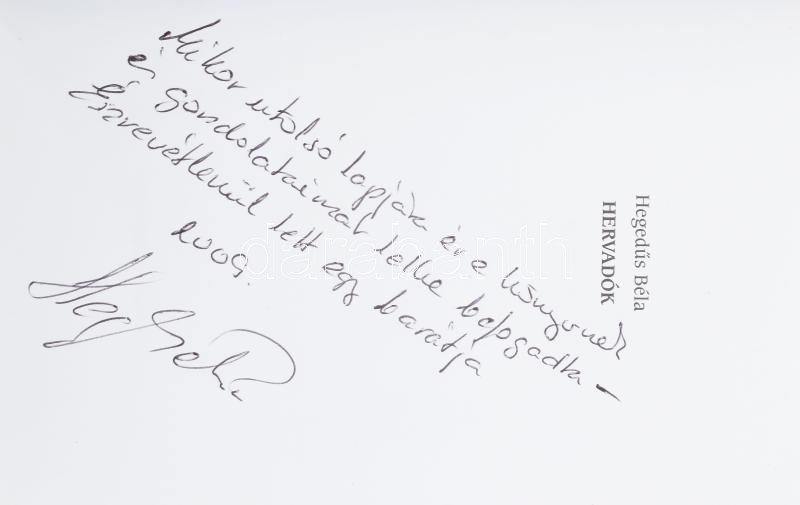 Hegedűs Béla
HERVADÓK
Mikor utolsó lapjára ér e könyvnek
és gondolataimat lelke befogadta –
Észrevétlenül lett egy barátja
2009.
Heg Béla
darabanth